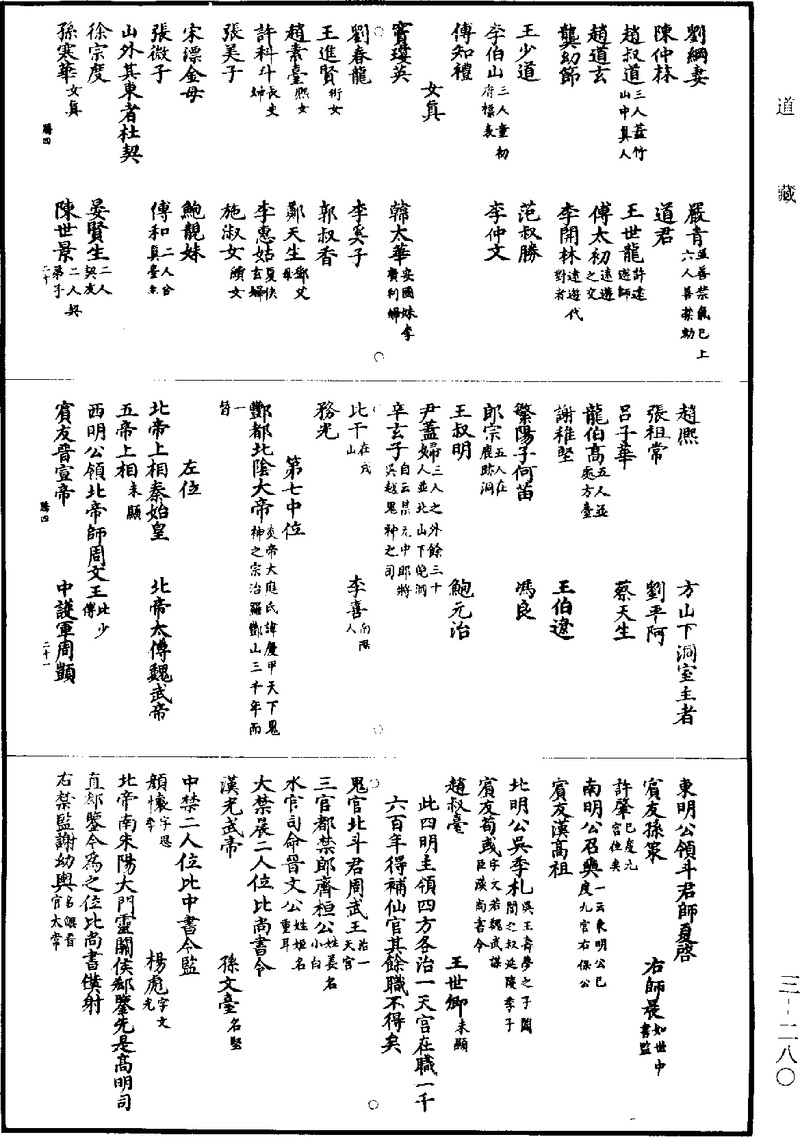 道藏
劉綱妻　嚴青並善禁氣已上六人善禁劾
陳仲林　道君
趙叔道三人蓋竹山中真人　王世龍許遠遊師
趙道玄　傅太初遠遊之交
龔幼節　李開林遠遊代對者
王少道　范叔勝
李伯山三人童初府標表　李仲文
傅知禮
女真
竇瓊英　韓太華安國妹李廣利婦
劉春龍　李奚子
王進賢衍女　郭叔香
趙素臺熙女　鄭天生鄧芝母
許科斗長史婦　李惠姑夏侯玄婦
張美子　施淑女績女
宋漂金母　鮑靚妹
張微子　傅和二人含真臺主
山外其東者杜契
徐宗度　晏賢生二人契友
孫寒華女真　陳世景二人契弟子
騰四　二十
趙熙　方山下洞室主者
張祖常　劉平阿
呂子華　蔡天生
龍伯高五人並處方臺
謝稚堅　王伯遼
繁陽子何苗　馮良
郎宗五人在鹿跡洞
王叔明　鮑元治
尹蓋婦三人之外餘三十人並北山下晚酒
辛玄子自云禁元中郎將吳越鬼神之司
比干在戎山　李喜南陽人
務光
第七中位
酆都北陰大帝炎帝大庭氏諱慶甲天下鬼神之宗治羅酆山三千年而一替
左位
北帝上相秦始皇　北帝太傅魏武帝
五帝上相未顯
西明公領北帝師周文王比少傅
賓友晉宣帝　中護軍周顗
騰四　二十一
東明公領斗君師夏啓
賓友孫策　右師晨如世中書監
許肇已度九宮位矣
南明公召奭一云東明公已度九宮右保公
賓友漢高祖
北明公吳季札吳王壽夢之子闔閭之叔延陵季子
賓友荀彧字文若魏武謀臣漢尚書令
趙叔臺　王世卿未顯
此四明主領四方各治一天宮在職一千六百年得補仙官其餘職不得矣
鬼官北斗君周武王治一天宮
三官都禁郎齊桓公姓姜名小白
水官司命晉文公姓姬名重耳
大禁晨二人位比尚書令
漢光武帝　孫文臺名堅
中禁二人位比中書令監
顏懷字思季　楊彪字文先
北帝南朱陽大門靈關侯郗鑒先是高明司直郗鑒今為之位比尚書僕射
右禁監謝幼輿名鯤晉官太常
三--二八〇